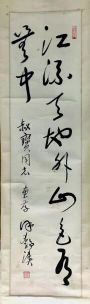 江流天地外山色有
无中
叔宝同志惠存